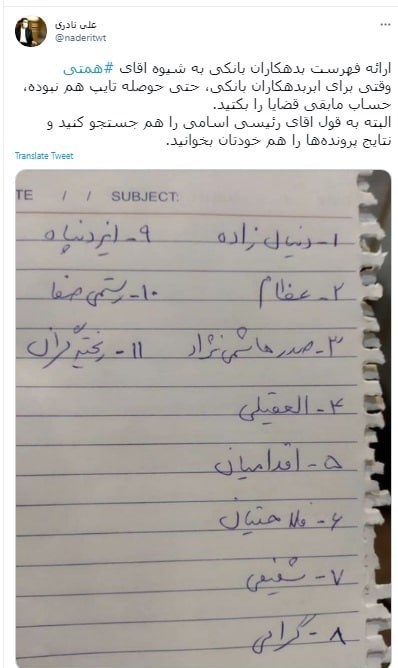 علی نادری
@naderitwt
ارائه فهرست بدهکاران بانکی به شیوه اقای #همتی
وقتی برای ابربدهکاران بانکی، حتی حوصله تایپ هم نبوده،
حساب مابقی قضایا را بکتید.
البته به قول اقای رئیسی اسامی را هم جستجو کنید و
نتایج پرونده‌ها را هم خودتان بخوانید.
Translate Tweet
TE / / SUBJECT:
۱- دنیال زاده
۲- عظام
۳- صدر هاشمی نژاد
۴- العقیلی
۵- اقدامیان
۶- فلاحتیان
۷- شفیعی
۸- گرامی
۹-
۱۰- رستمی صفا
۱۱- ریخته گران